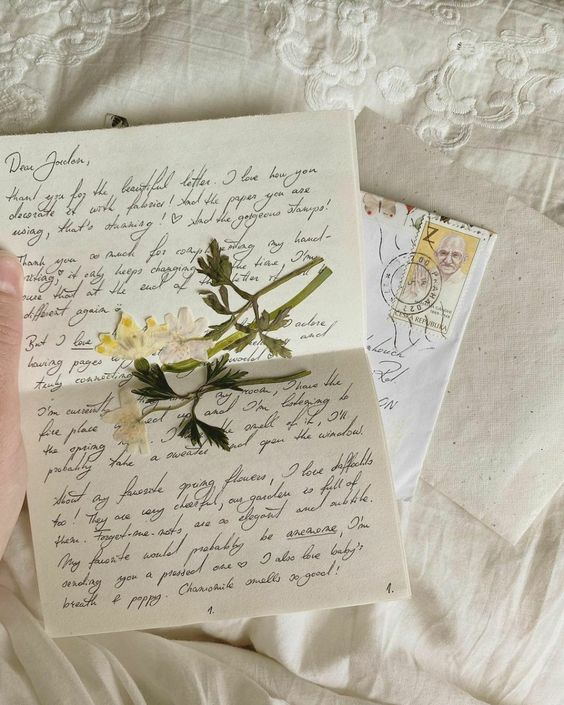 Dear Jordan,
thank you for the beautiful letter. I love how you
decorate it with fabrics! And the paper you are
using, that's stunning! ♡ And the gorgeous stamps!
Thank you so much for my hand-
writing ♡ it only keeps changing the time, I'm
sure that at the end of the letter it
different again
But I love adore
having pages and
truly connecting
I'm currently my room, I have the
fire place up and I'm listening to
the spring the smell of it, I'll
probably take a sweater and open the window.
About my favorite spring flowers, I love daffodils
too! They are very cheerful, our garden is full of
them. Forget-me-nots are so elegant and subtle.
My favorite would probably be anemone, I'm
sending you a pressed one ♡ I also love baby's
breath & poppy. Chamomile smells so good!
1.
1.
ČESKÁ REPUBLIKA